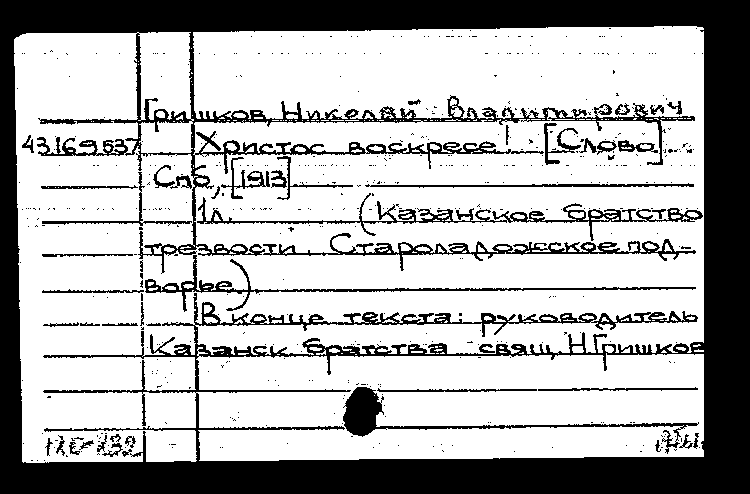 Гришков, Николай Владимирович
43.169.537 Христос воскресе! [Слово].
Спб, [1913]
1л. (Казанское братство
трезвости. Староладожское под-
ворье).
В конце текста: руководитель
Казанск. братства свящ. Н.Гришков